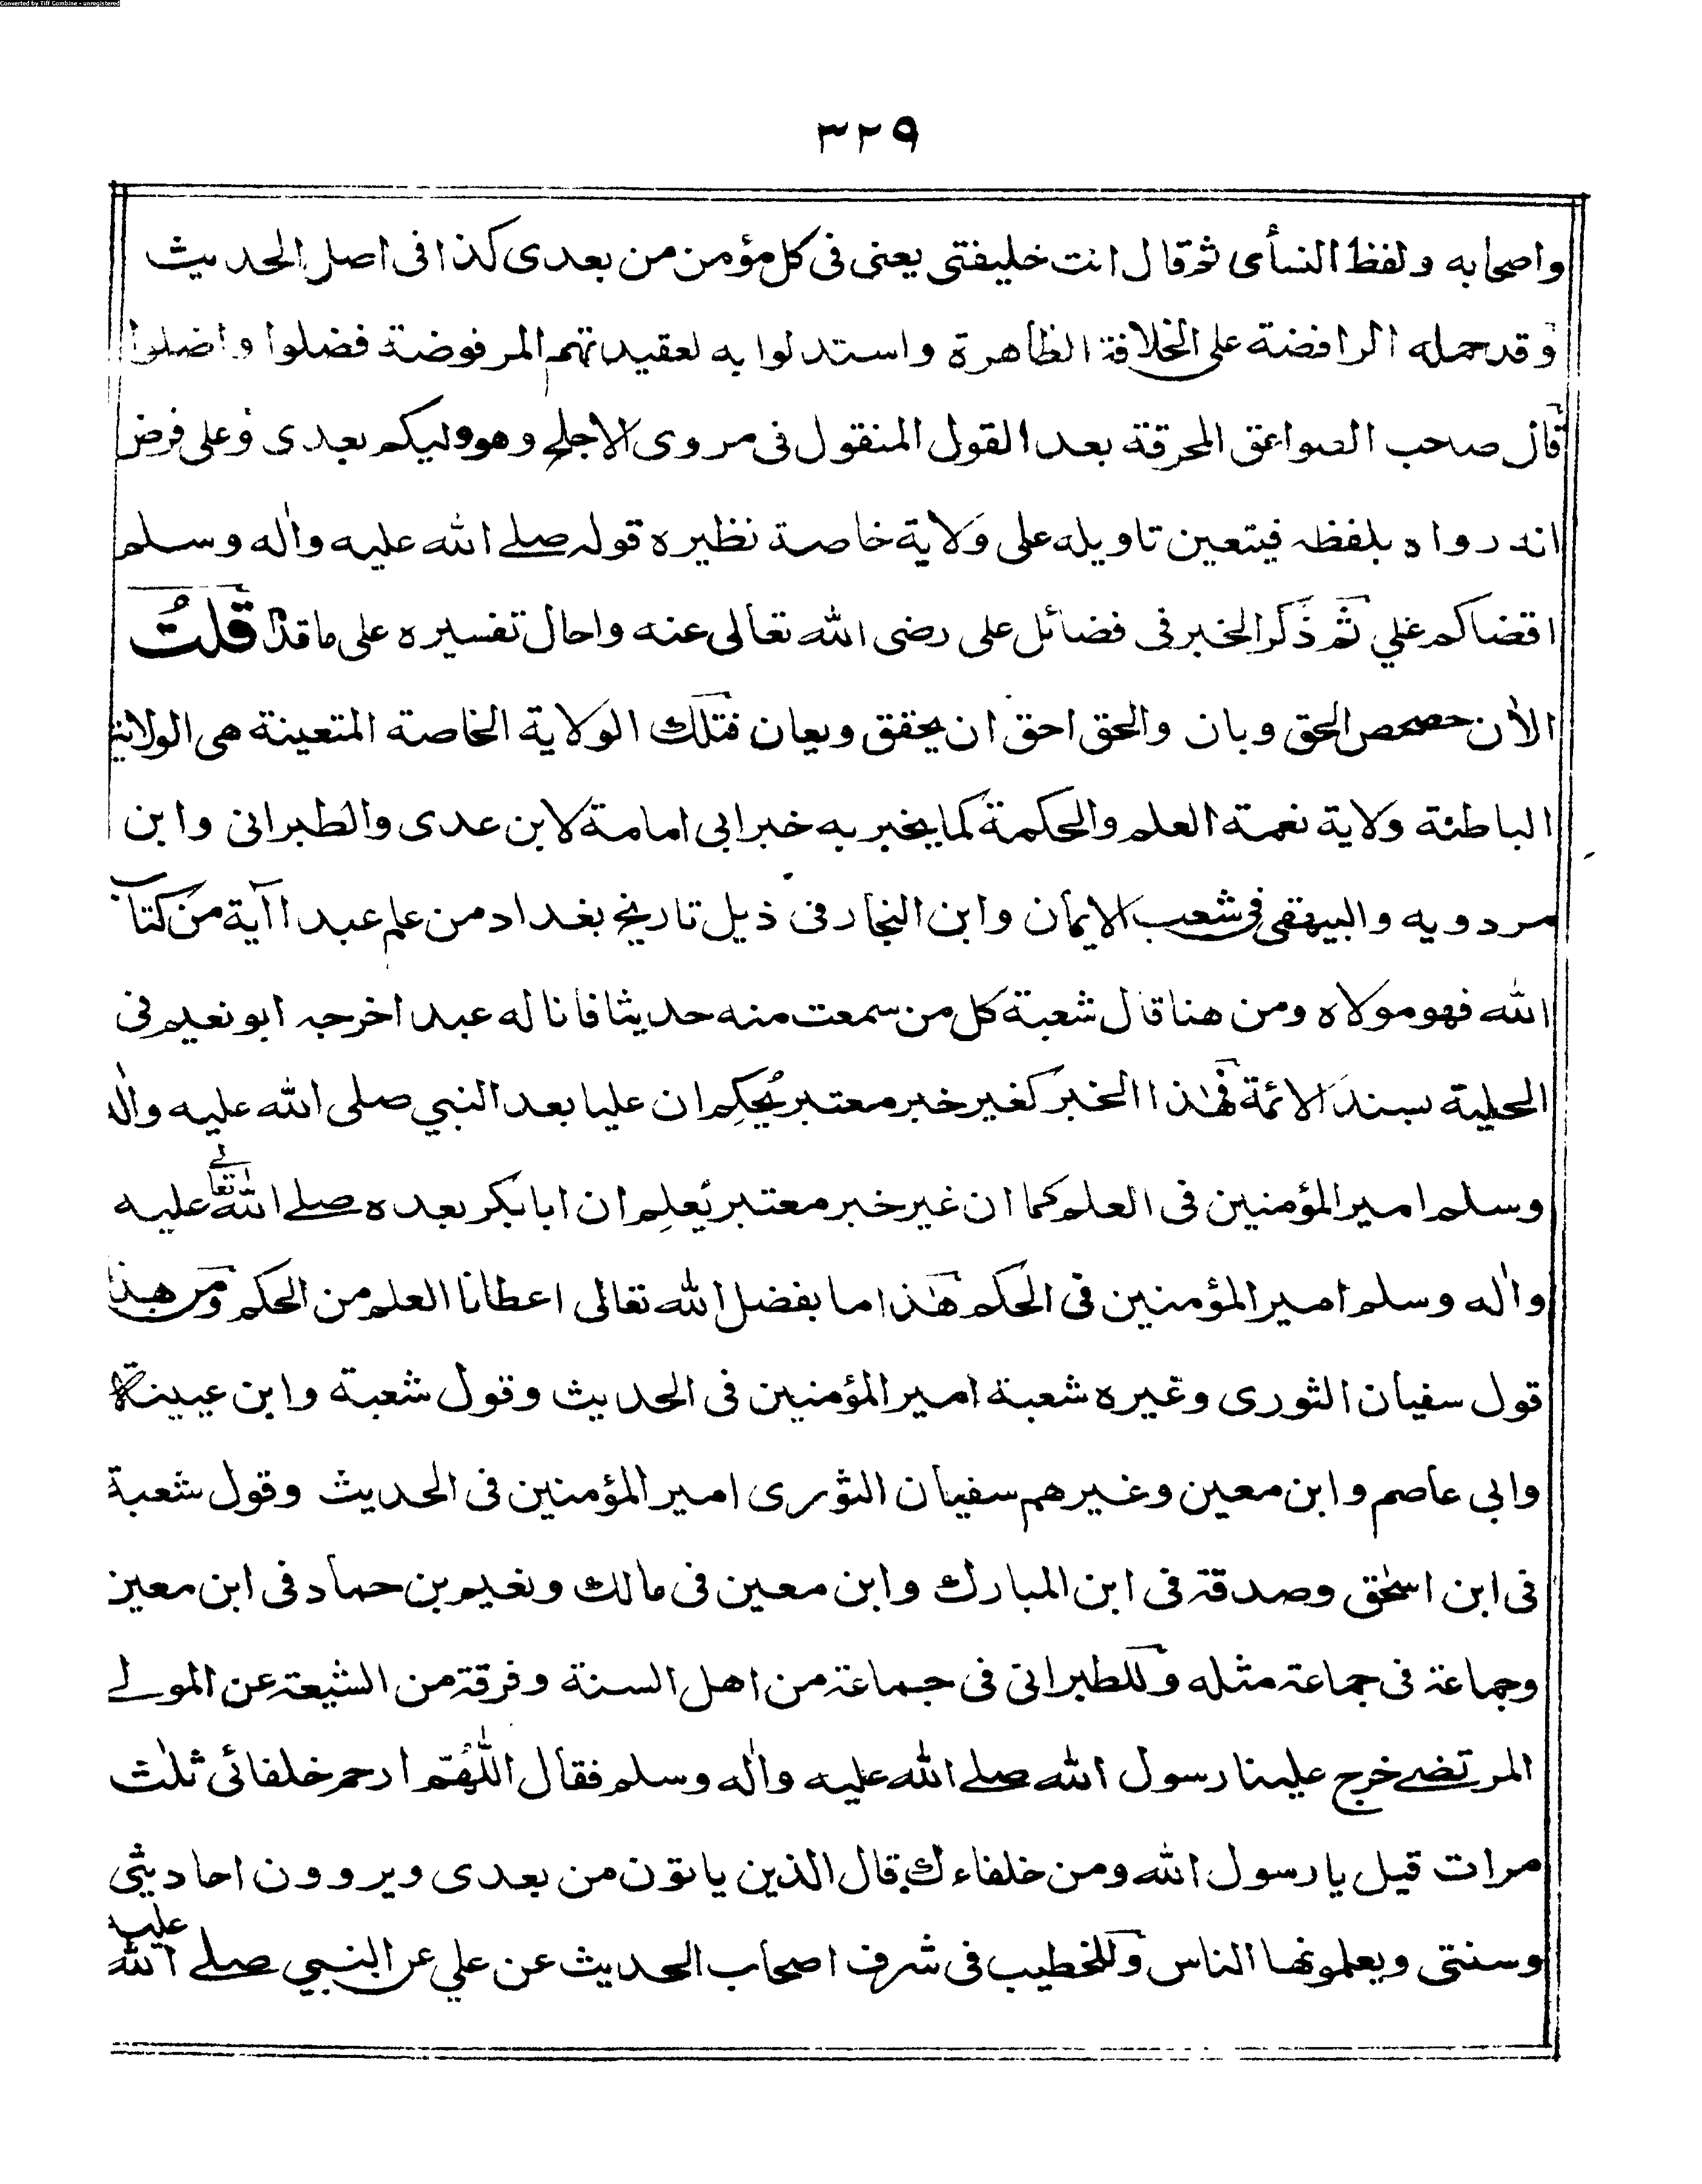 Converted by Tiff Combine - unregistered
٣٢٩
واصحابه ولفظ النسأى ثم قال انت خليفتى يعنى فى كل مؤمن من بعدى كذا فى اصل الحديث
وقد حمله الرافضة على الخلافة الظاهرة واستدلوا به لعقيدتهم المرفوضة فضلوا واضلوا
قال صاحب الصواعق المحرقة بعد القول المنقول فى مروى الاجلح وهو وليكم بعدى وعلى فرض
انه رواه بلفظه فيتعين تاويله على ولاية خاصة نظيره قوله صلے الله عليه واٰله وسلم
اقضاكم علي ثم ذكر الخبر فى فضائل على رضى الله تعالى عنه واحال تفسيره على ما قدم قلتُ
الاٰن حصحص الحق وبان والحق احق ان يحقق ويعان فتلك الولاية الخاصة المتعينة هى الولاية
الباطنة ولاية نعمة العلم والحكمة كما يخبر به خبر ابى امامة لابن عدى والطبرانى وابن
مردويه والبيهقى فى شعب الايمان وابن النجار فى ذيل تاريخ بغداد من علم عبدا آية من كتاب
الله فهو مولاه ومن هنا قال شعبة كل من سمعت منه حديثا فانا له عبد اخرجه ابو نعيم فى
الحلية بسند الائمة فهٰذا الخبر كغير خبر معتبر يُحكِم ان عليا بعد النبي صلى الله عليه واٰله
وسلم امير المؤمنين فى العلم كما ان غير خبر معتبر يُعلِم ان ابا بكر بعده صلے الله تعالے عليه
واٰله وسلم امير المؤمنين فى الحكم هٰذا ما بفضل الله تعالى اعطانا العلم من الحكم ومن هذا
قول سفيان الثورى وغيره شعبة امير المؤمنين فى الحديث وقول شعبة وابن عيينة
وابى عاصم وابن معين وغيرهم سفيان الثورى امير المؤمنين فى الحديث وقول شعبة
فى ابن اسحٰق وصدقة فى ابن المبارك وابن معين فى مالك ونعيم بن حماد فى ابن معين
وجماعة فى جماعة مثله وللطبرانى فى جماعة من اهل السنة وفرقة من الشيعة عن المولے
المرتضے خرج علينا رسول الله صلے الله عليه واٰله وسلم فقال اللّٰهُمّ ارحم خلفائى ثلٰث
مرات قيل يا رسول الله ومن خلفاءك قال الذين ياتون من بعدى ويروون احاديثى
وسنتى ويعلمونها الناس وللخطيب فى شرف اصحاب الحديث عن علي عن النبي صلے الله عليه